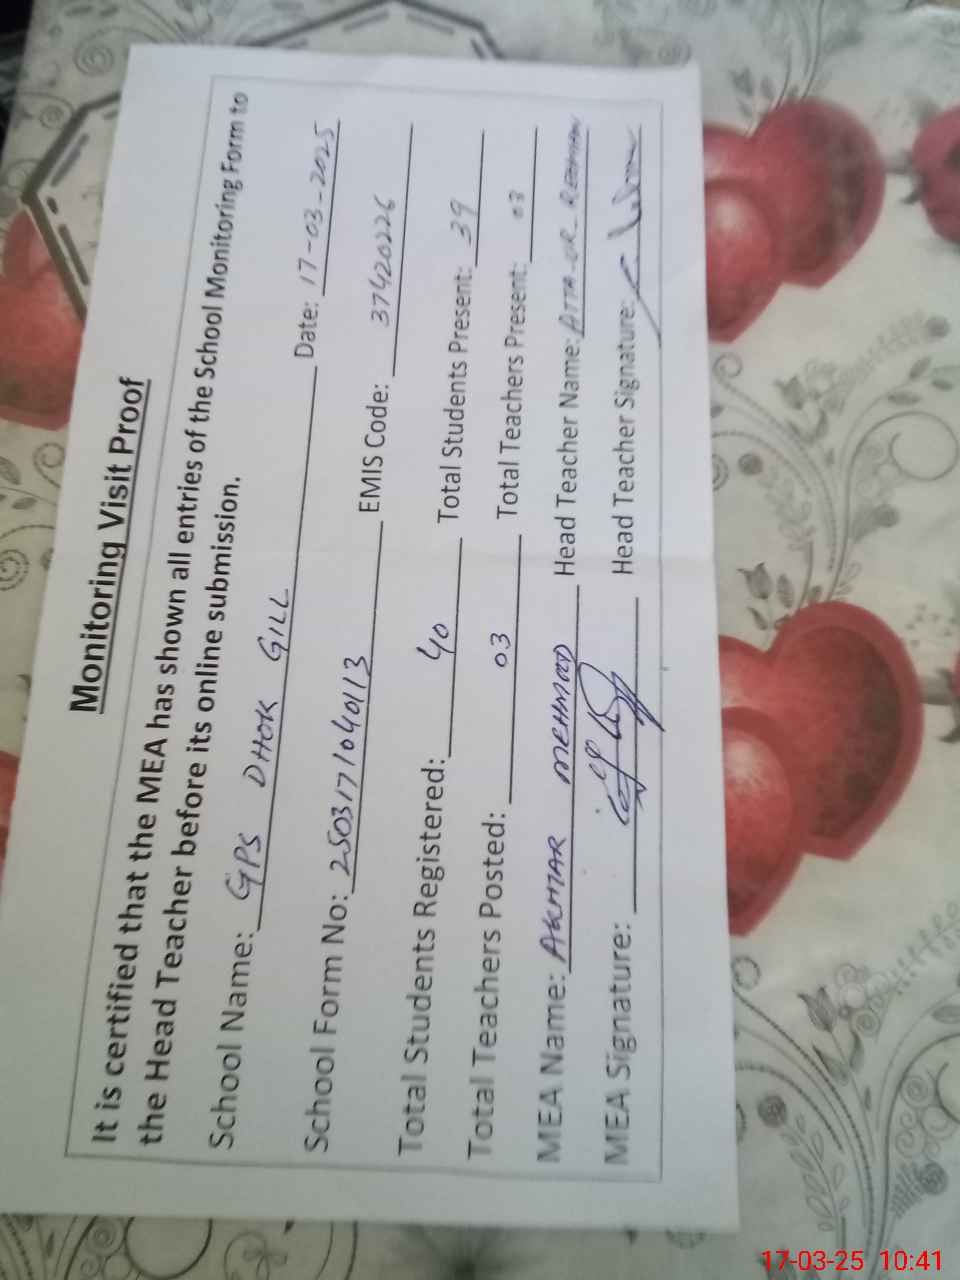 Monitoring Visit Proof
It is certified that the MEA has shown all entries of the School Monitoring Form to
the Head Teacher before its online submission.
School Name: GPS DHOK GILL Date: 17-03-2025
School Form No: 2503171040113 EMIS Code: 37420226
Total Students Registered: 40 Total Students Present: 39
Total Teachers Posted: 03 Total Teachers Present: 03
MEA Name: AKHTAR MEHMOOD Head Teacher Name: ATTA-UR-REHMAN
MEA Signature: Head Teacher Signature:
17-03-25 10:41